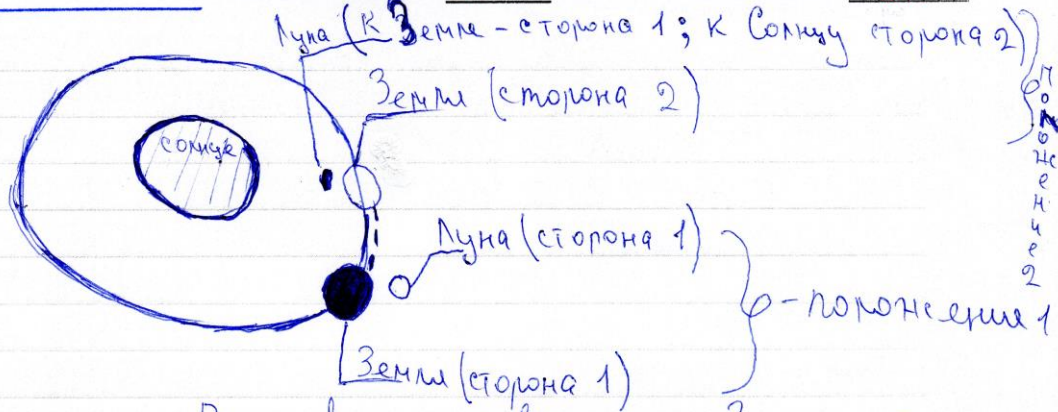 Луна (к Земле - сторона 1; к Солнцу сторона 2)
Земля (сторона 2)
положение 2
солнце
Луна (сторона 1)
- положение 1
Земля (сторона 1)